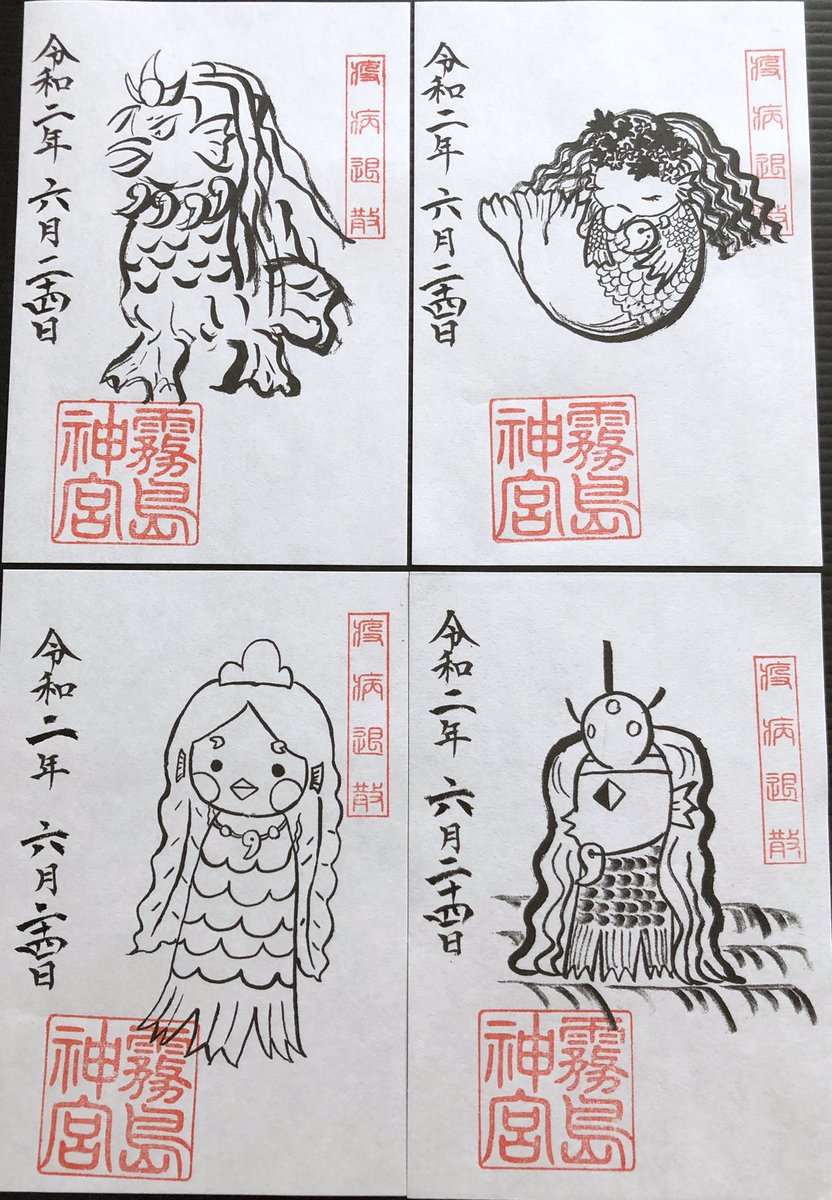 疫病退散
令和二年 六月二十四日
霧島
神宮
疫病退散
令和二年 六月二十四日
霧島
神宮
疫病退散
令和二年 六月二十四日
霧島
神宮
疫病退散
令和二年 六月二十四日
霧島
神宮